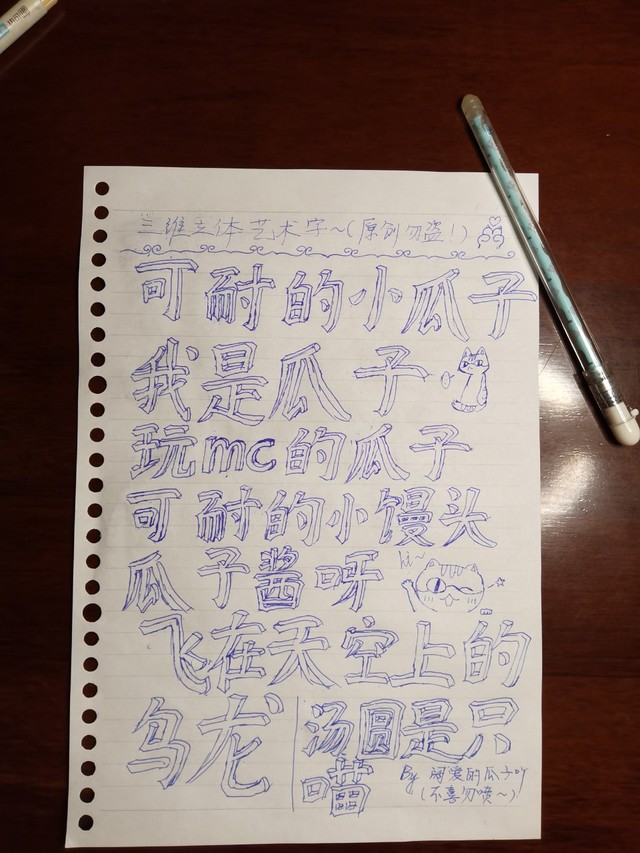 三维立体艺术字~(原创勿盗!)
可耐的小瓜子
我是瓜子
玩mc的瓜子
可耐的小馒头
瓜子酱呀
hi~
飞在天空上的
乌龙
汤圆是只
喵
By 阔爱的瓜子吖
(不喜勿喷~)